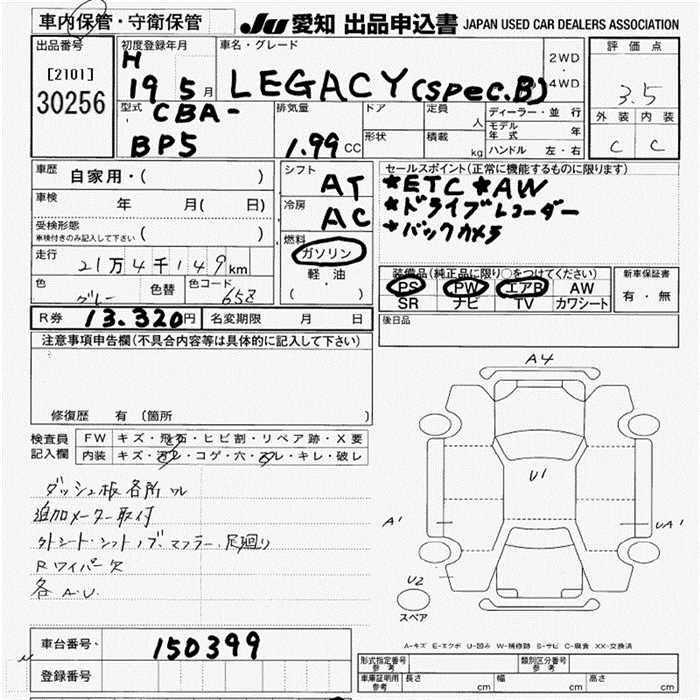 車内保管・守衛保管
JU 愛知 出品申込書 JAPAN USED CAR DEALERS ASSOCIATION
出品番号
[2101]
30256
初度登録年月
H 19 5月
車名・グレード
LEGACY (spec.B)
2WD
・
4WD
評価点
3.5
外装 内装
C C
型式
CBA-
BP5
排気量
1.99 CC
ドア
定員
人
形状
積載
kg
ディーラー・並行
モデル年式 年
ハンドル 左・右
車歴
自家用・( )
車検
年 月( 日)
受検形態
車検付きのみ記入して下さい ( )
走行
21万4千149km
色
グレー
色替
色コード
658
シフト
AT
冷房
AC
燃料
ガソリン
軽・油
( )
セールスポイント(正常に機能するものに限ります)
*ETC *AW
*ドライブレコーダー
*バックカメラ
装備品(純正品に限り○をつけてください)
PS PW エアB AW
SR ナビ TV カワシート
新車保証書
有・無
R券 13.320円
名変期限 月 日
後日品
注意事項申告欄(不具合内容等は具体的に記入して下さい)
修復歴 有(箇所 )
検査員
記入欄
FW キズ・飛石・ヒビ割・リペア跡・X要
内装 キズ・汚レ・コゲ・穴・スレ・キレ・破レ
ダッシュ板各所ワレ
追加メーター取付
外シート・シフトノブ、マフラー、足廻り
Rワイパー欠
各A.U.
A4
U1
A1
UA1
U2
スペア
A-キズ E-エクボ U-凹み W-補修跡 S-サビ C-腐食 XX-交換済
車台番号
150399
登録番号
形式指定番号
参考
類別区分番号
参考
車庫証明用
参考
長さ cm
幅 cm
高さ cm